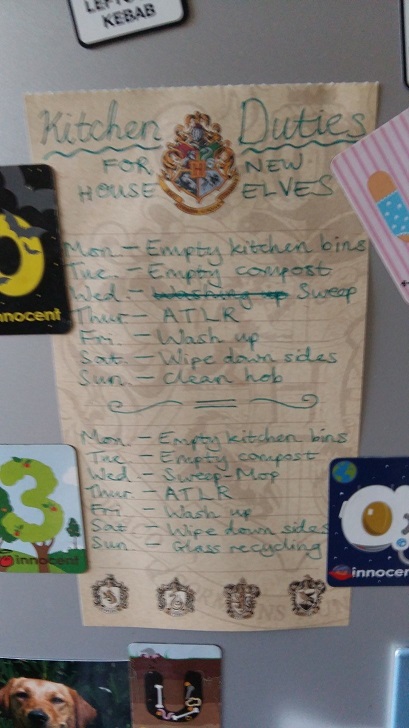 KEBAB
Kitchen Duties
FOR NEW
HOUSE ELVES
Mon - Empty kitchen bins
Tue - Empty compost
Wed - Washing up Sweep
Thur - ATLR
Fri - Wash up
Sat - Wipe down sides
Sun - Clean hob
Mon - Empty kitchen bins
Tue - Empty compost
Wed - Sweep-Mop
Thur - ATLR
Fri - Wash up
Sat - Wipe down sides
Sun - Glass recycling
nnocent
3
innocent
innocen
U